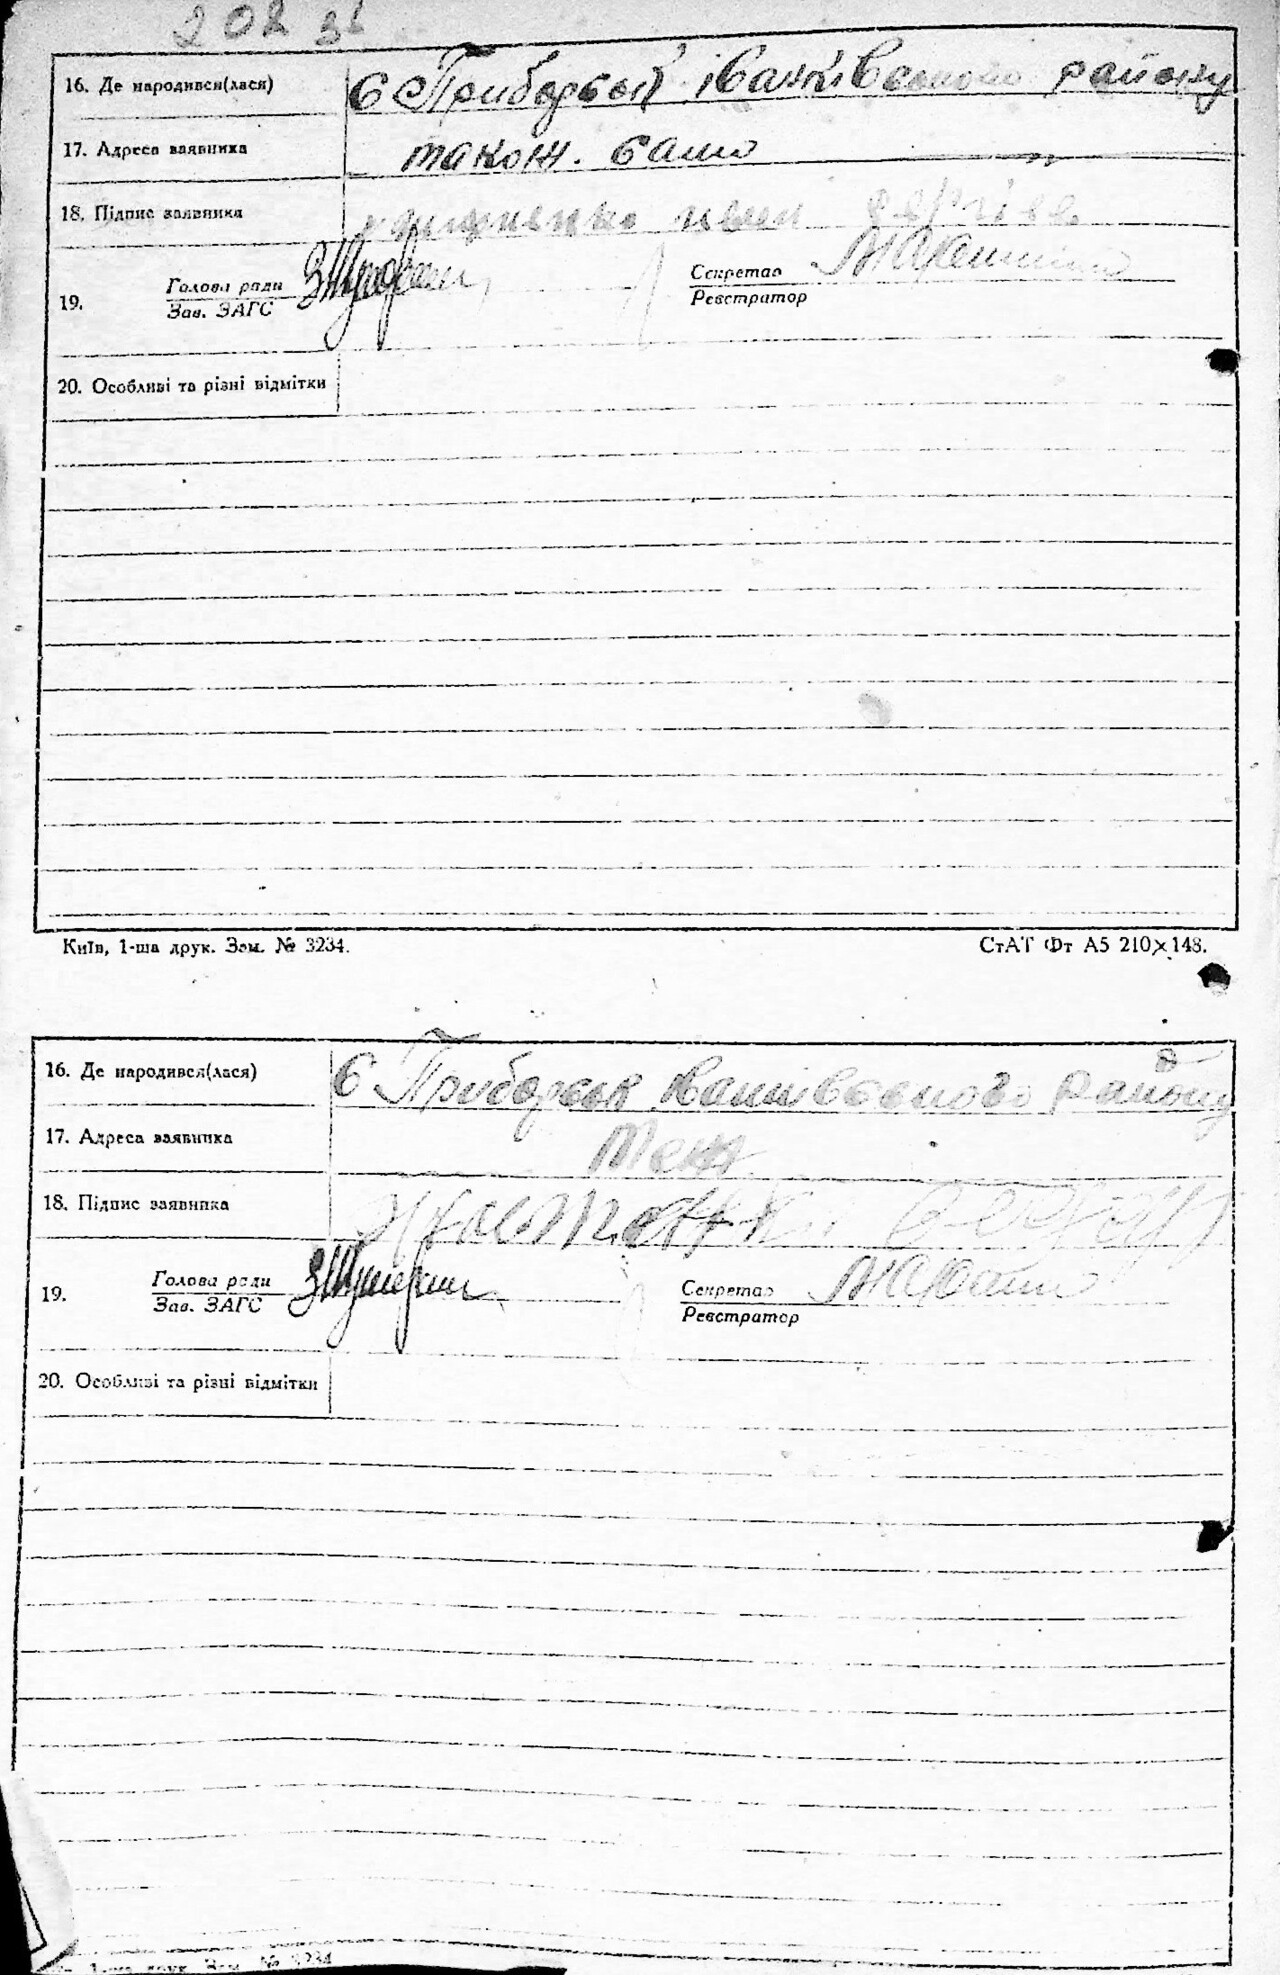 202 зв
16. Де народився(лася) с Приборськ Іванківського району
17. Адреса заявника також. само
18. Підпис заявника
19. Голова ради Секретар
Зав. ЗАГС Реєстратор
20. Особливі та різні відмітки
Київ, 1-ша друк. Зам. № 3234. СтАТ Фт А5 210×148.
16. Де народився(лася) с Приборськ Іванківського району
17. Адреса заявника Теж
18. Підпис заявника
19. Голова ради Секретар
Зав. ЗАГС Реєстратор
20. Особливі та різні відмітки
1-ша друк. Зам. № 3234